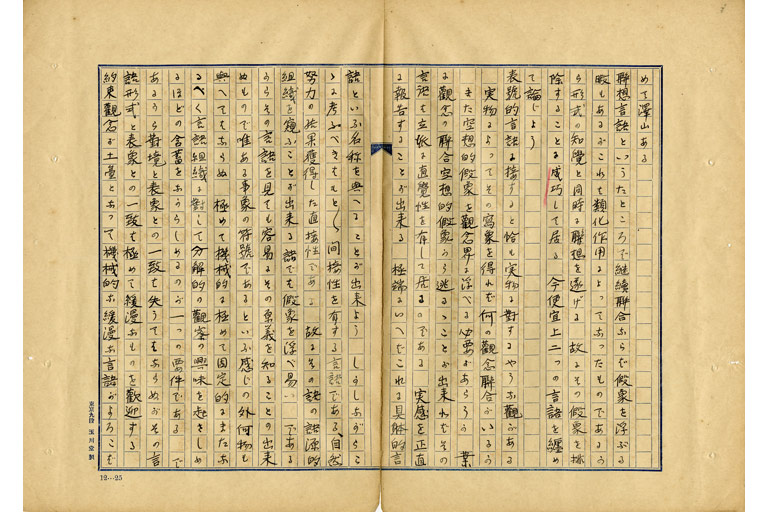 めて澤山ある
聯想言語といつたところで継続聯合ならば仮象を浮ぶる
暇もあるがこれも類化作用によつてあつたものであるか
ら形式の知覺と同時に聯想を遂げる 故にその仮象を排
除することに成巧して居る 今便宜上二つの言語を纏め
て論じよう
表號的言語に接すると恰も実物に對するやうな觀がある
実物によつてその寫象を得れば何の觀念聯合がいるか
また空想的仮象を觀念界に浮べる必要があらうか 業
に觀念の聯合空想的仮象から逃るゝことが出来ればその
言語も立派に直覺性を有して居るのである 実感を正直
に報告することが出来る 極端にいへばこれは具体的言
語といふ名称を與へることが出来よう しかしながらこ
れは考ふべきものとし 間接性を有する言語である 自然
努力の結果獲得した直接性である 故にその語の語源的
組織を窺ふことが出来る 誰でも仮象を浮べ易い である
からその言語を見ても容易にその意義を知ることの出来
ぬもので唯ある事象の符號であるといふ感じの外何物も
與へてをらぬ 極めて機械的な極めて固定的なまたな
るべく言語組織に對して分解的の觀察の興味を起さしめ
るほどの含蓄をなからしめるのが一つの要件である で
あるから對境と表象との一致も失うてをならぬがその言
語形式と表象との一致も極めて緩漫なものを歡迎する
約束觀念が土臺となつて機械的な緩漫な言語がよろこば
東京九段 玉川堂製
12…25